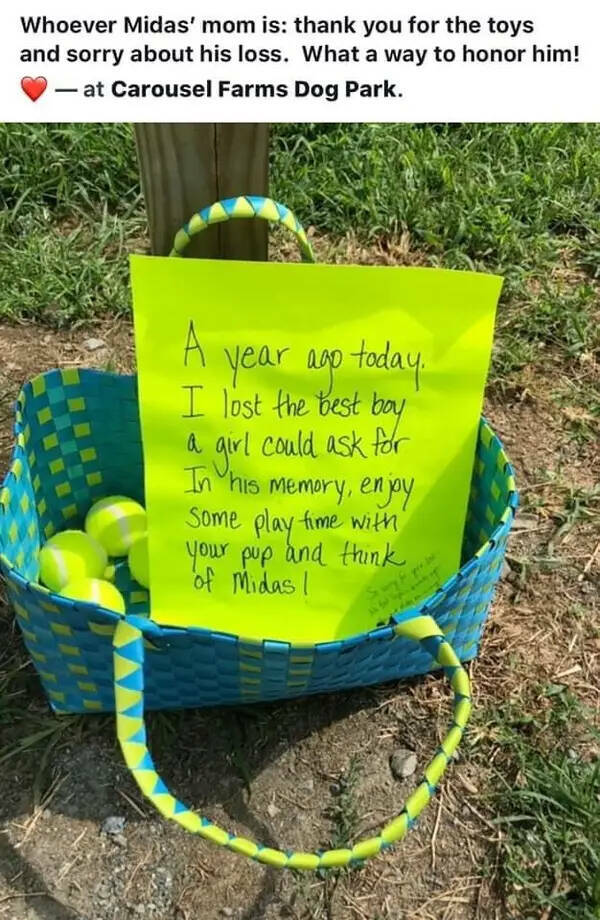 Whoever Midas' mom is: thank you for the toys
and sorry about his loss.  What a way to honor him!
❤️ — at Carousel Farms Dog Park.
A year ago today.
I lost the best boy
a girl could ask for
In his memory, enjoy
some play time with
your pup and think
of Midas!